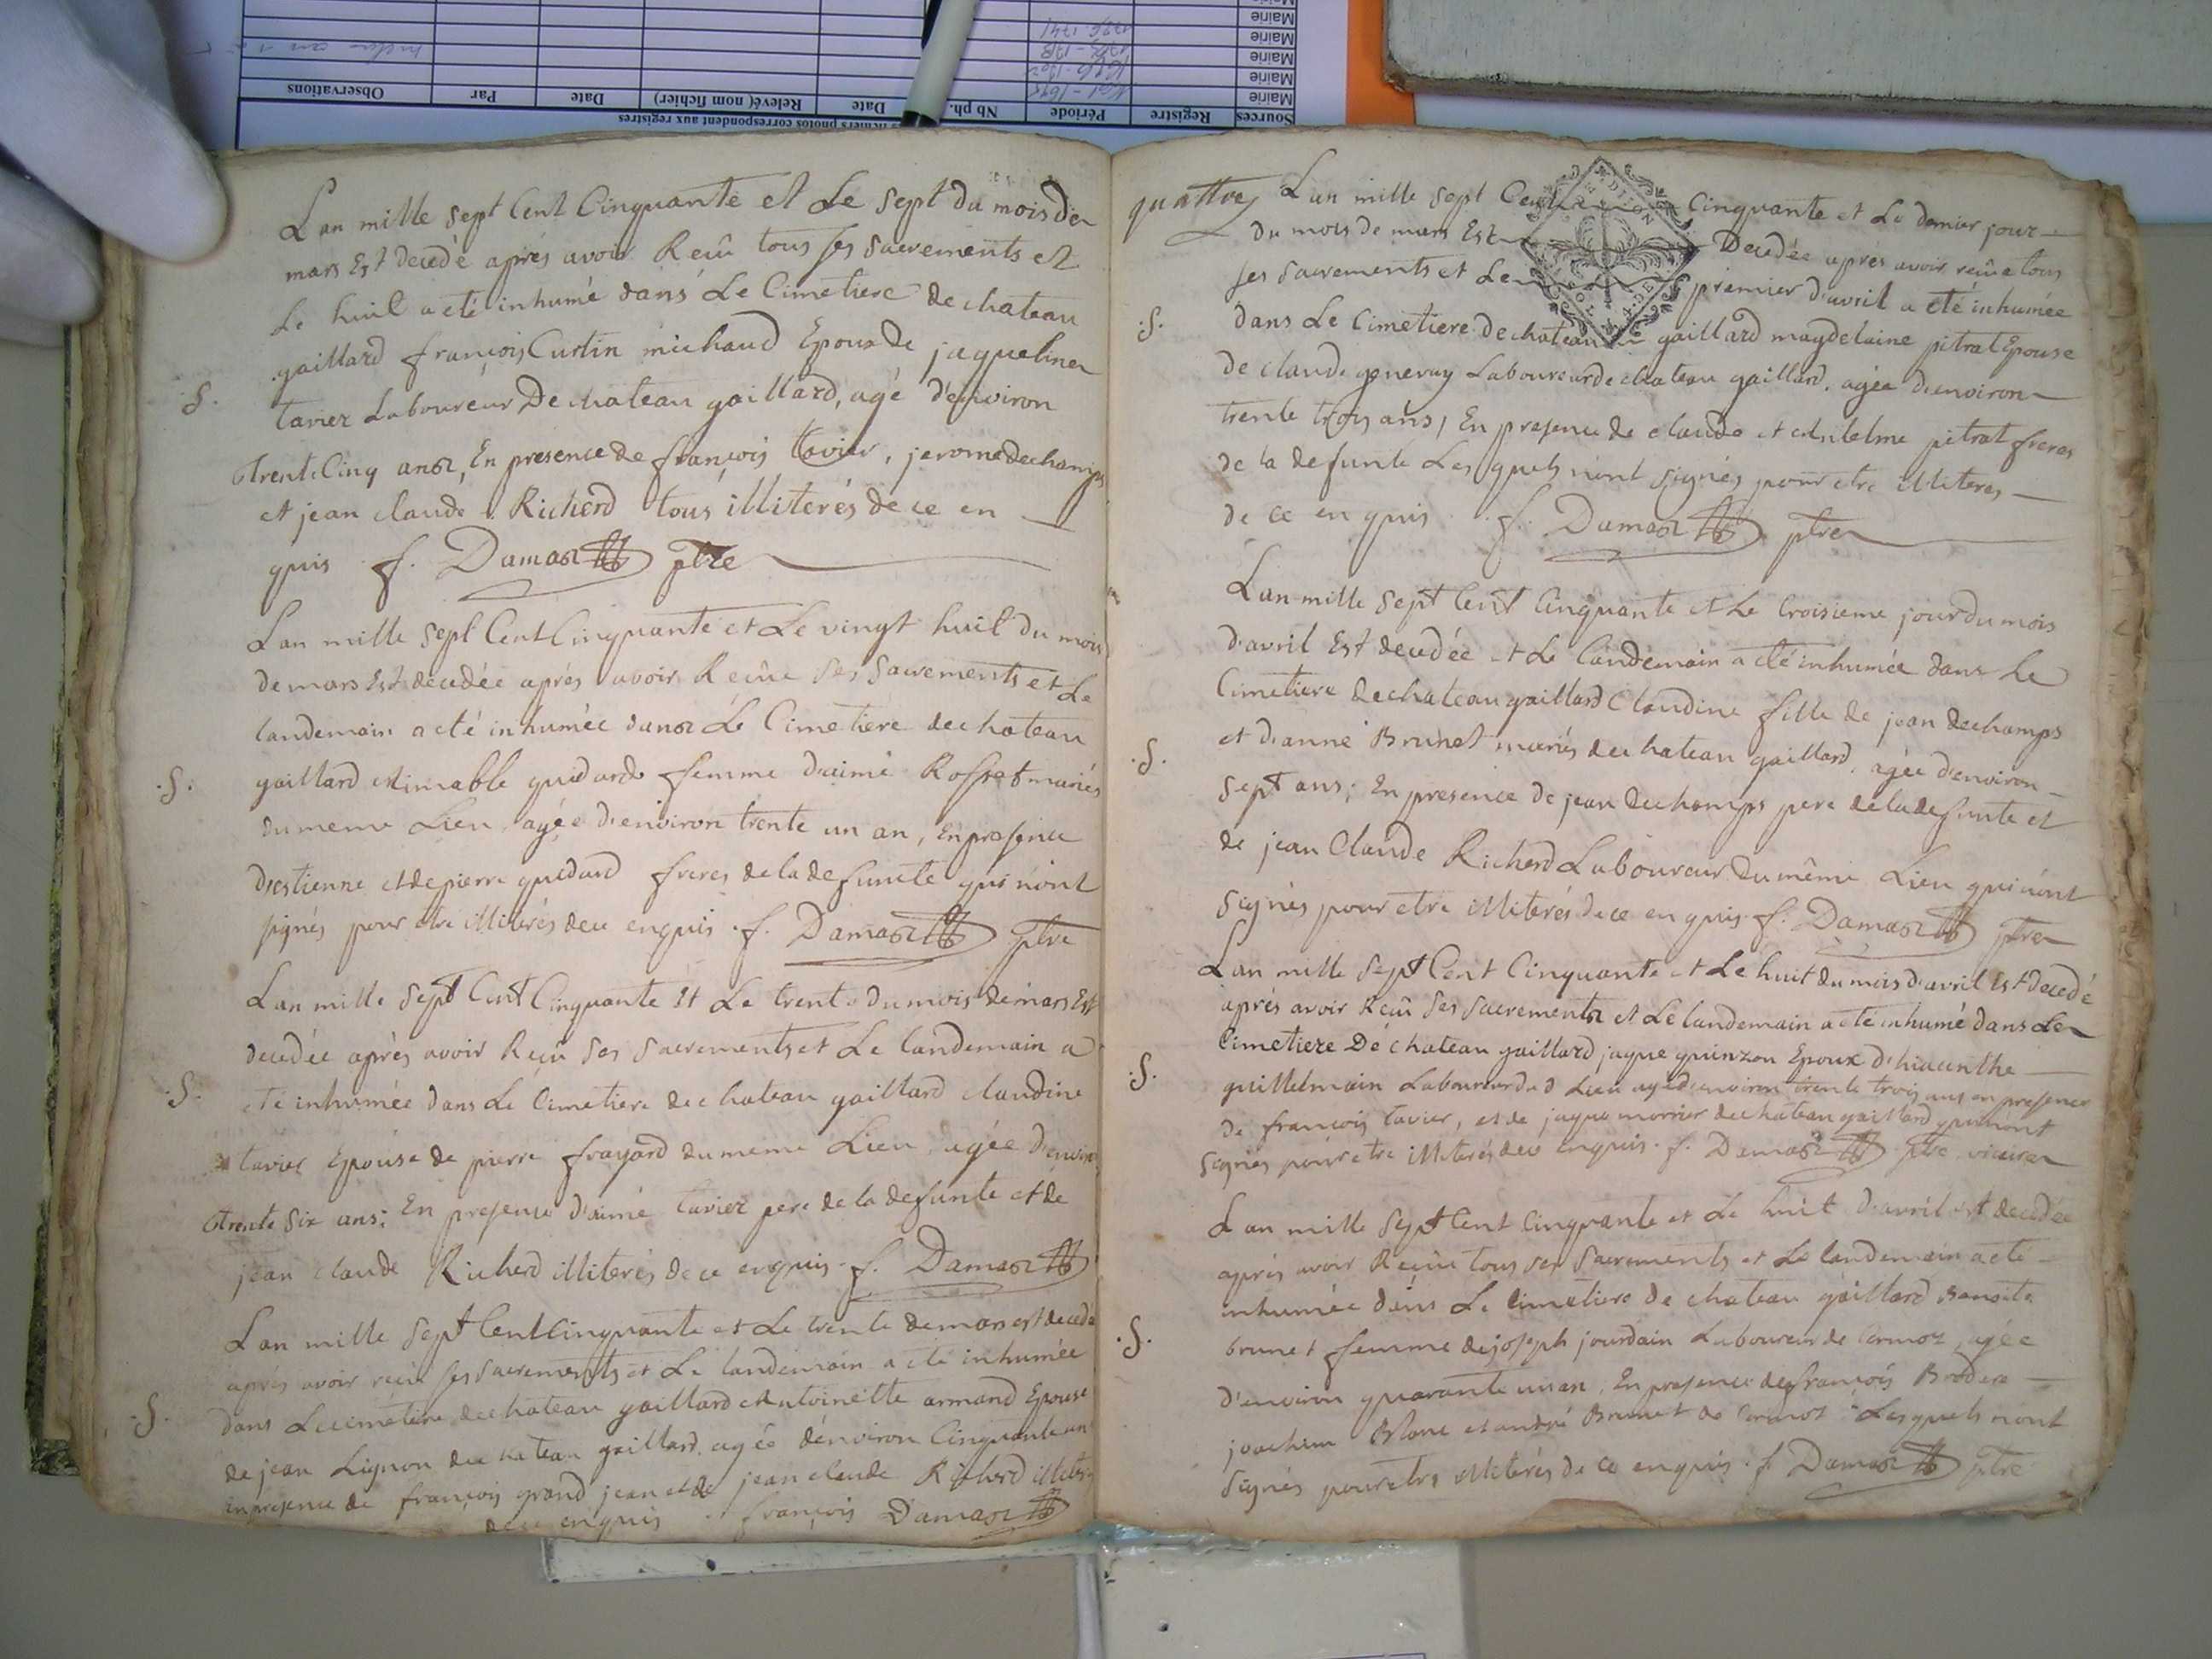 Sources Registre Période Nb ph. Date Relevé( nom fichier) Date Par Observations
Mairie
Mairie
Mairie
Mairie
Mairie
L'an mille sept Cent Cinquante et Le sept du mois de
mars Est decedé aprés avoir Reçû tous ses sacrements et
Le huit a eté inhumé dans Le Cimetiere de chateau
gaillard françois Curtin michaud Epoux de jaqueline
.S. tavier Laboureur De chateau gaillard, agé d'environ
trente Cinq ans, En presence de françois tavier, jerome dechamps
et jean claude Richerd tous illiterés de ce en
quis f. Damas ptre
L'an mille sept Cent Cinquante et Le vingt huit du mois
de mars Est decedée aprés avoir Reçûe ses sacrements et Le
landemain a eté inhumée dans Le Cimetiere de chateau
.S. gaillard Aimable guidard femme d'aimé Rosset mariés
du meme Lieu, agée d'environ trente un an, En presence
d'estienne et de pierre guedard freres de la defuncte qui n'ont
signés pour etre illiterés de ce enquis f. Damas ptre
L'an mille sept Cent Cinquante Et Le trente du mois de mars Est
decedée aprés avoir Reçû ses sacrements et Le landemain a
.S. eté inhumée dans Le Cimetiere de chateau gaillard claudine
tavier Epouse de pierre frayard du meme Lieu, agée d'environ
trente six ans; En presence d'aimé tavier pere de la defunte et de
jean claude Richerd illiterés de ce enquis. f. Damas
L'an mille sept Cent Cinquante et Le trente de mars est decedé
aprés avoir reçû ses sacrements et Le landemain a eté inhumée
.S. dans Le cimetiere de chateau gaillard Antoinette armand Epouse
de jean Lignon de chateau gaillard, agée d'environ Cinquante ans
en presence de françois grand jean et de jean claude Richerd illiterés
de ce enquis françois Damas
quattre L'an mille sept Cent Cinquante et Le dernier jour
du mois de mars Est Decedée aprés avoir reçûe tous
ses sacrements et Le premier d'avril a eté inhumée
.S. dans Le Cimetiere de chateau gaillard magdelaine pitrat Epouse
de claude genevay Laboureur de chateau gaillard, agée d'environ
trente trois ans, En presence de claude et Antelme pitrat freres
de la defunte Lesquels n'ont signés pour etre illiteres
de ce en quis f. Damas ptre
L'an mille sept Cent Cinquante et Le troisieme jour du mois
d'avril Est decedée et Le landemain a eté inhumée dans Le
Cimetiere de chateau gaillard Claudine fille de jean dechamps
.S. et d'anne Brunet mariés de chateau gaillard, agée d'environ
sept ans; En presence de jean dechamps pere de la defunte et
de jean Claude Richerd Laboureur du même Lieu qui n'ont
signés pour etre illiterés de ce en quis f. Damas ptre
L'an mille sept Cent Cinquante et Le huit du mois d'avril Est decedé
aprés avoir Reçû ses sacrements et Le landemain a eté inhumé dans Le
Cimetiere De chateau gaillard jaque guinzon Epoux d'hiacinthe
.S. guillelmain Laboureur du d Lieu agé d'environ trente trois ans en presence
de françois tavier, et de jaque morrier de chateau gaillard qui n'ont
signés pour etre illiterés de ce enquis. f. Damas ptre vicaire
L'an mille sept Cent Cinquante et Le huit d'avril est decedée
aprés avoir Reçûe tous ses sacrements et Le landemain a eté
inhumée dans Le Cimetiere de chateau gaillard Benoite
.S. brunet femme de joseph jourdain Laboureur de Cormoz, agée
d'environ quarante un an, En presence de françois Brodera
joachim Blanc et andré Brunet de Cormoz Lesquels n'ont
signés pour etre illiterés de ce enquis. f. Damas ptre